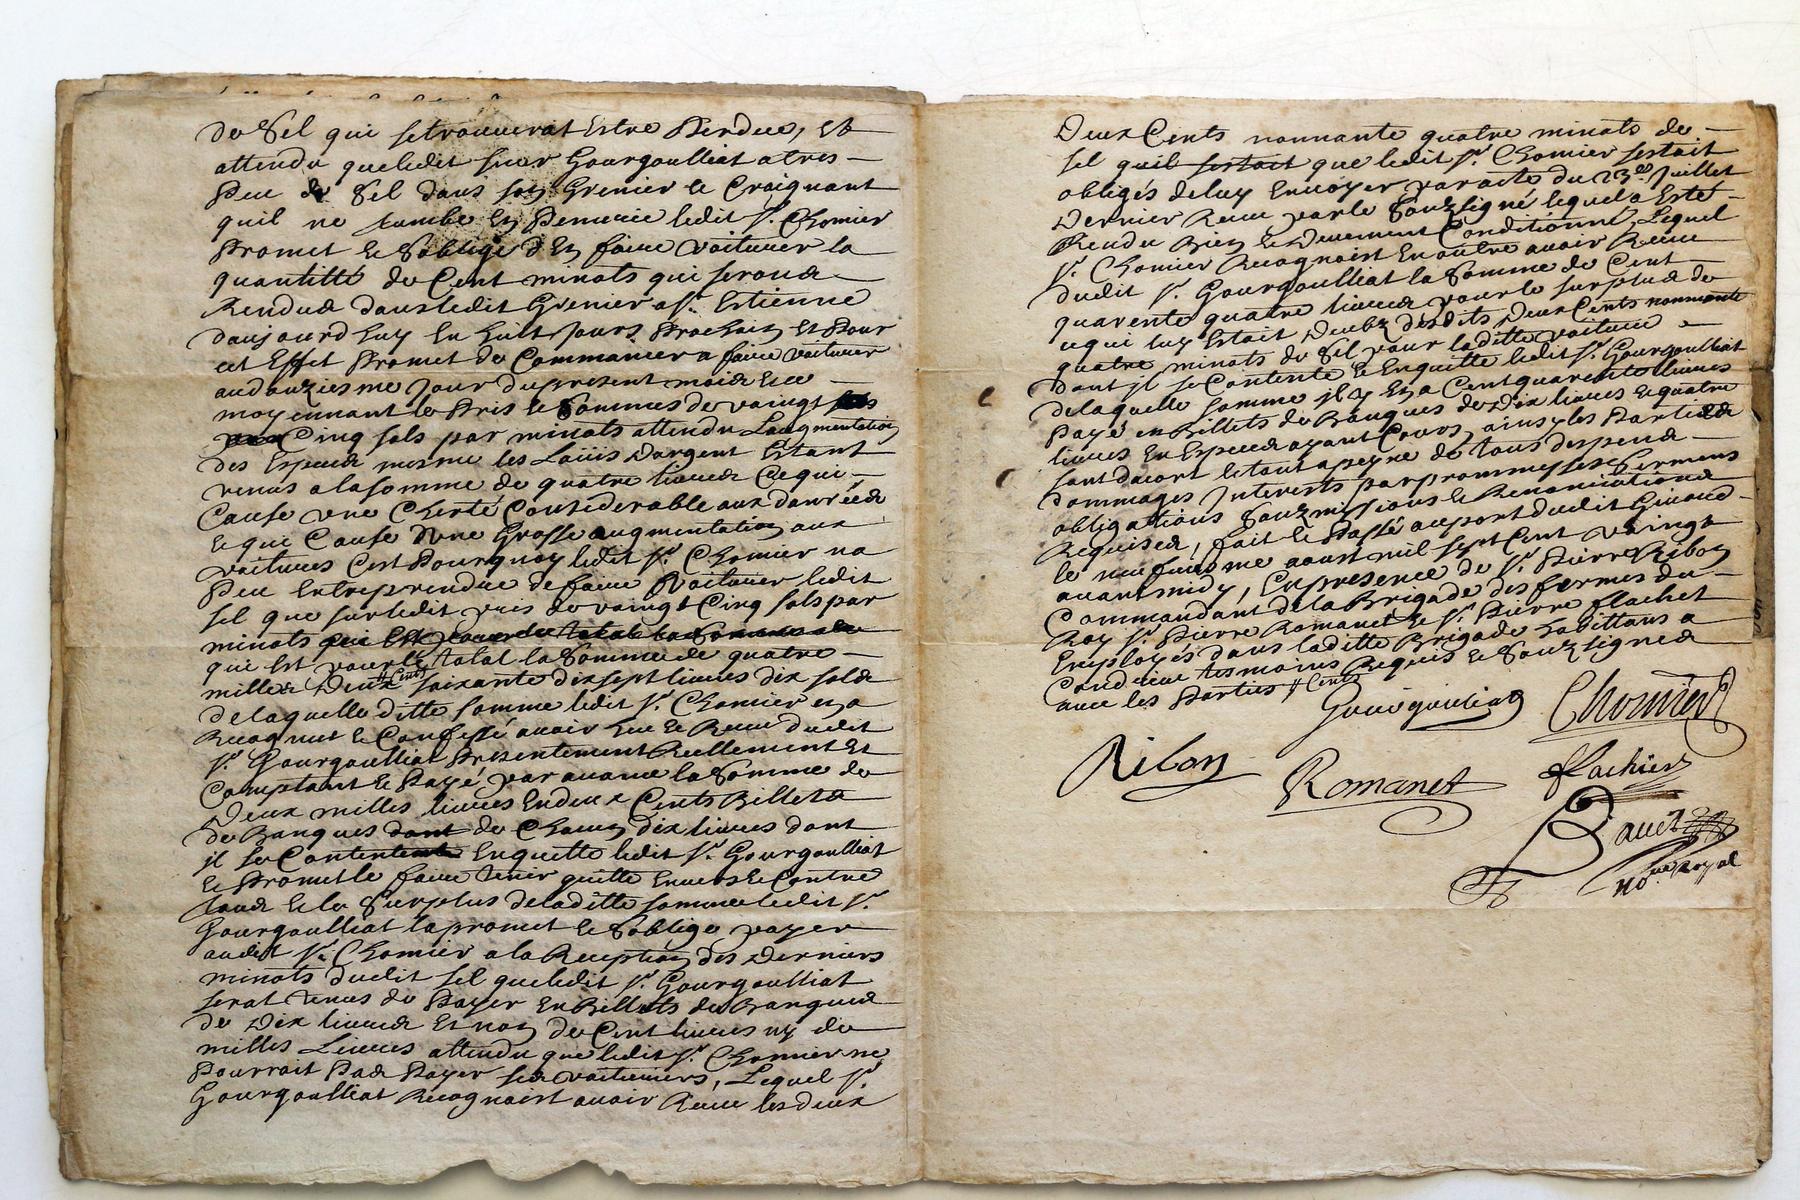 de Sel qui se trouverat Estre Perdue, Et
attendu queledit sieur Gourgoulliat atres
Peu de Sel dans son Grenier Le Craignant
quil ne tumbe En Penurie ledit Sr. Chomier
Promet Et Soblige d'En faire voiturer la
quantitté de Cent minots qui seronds
Rendus dans ledit Grenier a St. Estienne
daujourdhuy En huit jours Prochain Et Pour
cet Effet Promet de Commancer a faire voiturer
audouziesme Jour dupresent mois Et ce
moyennant le Pris Et Sommes de vaingt
Cinq sols par minots attendu Laugmentation
des Especes mesme les Loüis Dargent Estant
venus alasomme de quatre livres Cequi
Cause vne Cherté Considerable aux danréés
Equi Cause d'vne Grosse augmentation aux
voitures C'est Pourquoy ledit Sr. Chomier na
Peu Entreprendre de faire voiturer ledit
sel que surledit pris de vaingt Cinq sols par
minots qui Est pour le total la Somme de
qui est pour le total la Somme de quatre
milles Deux Cents soixante dix sept livres dix sols
delaquelle ditte somme ledit Sr. Chomier en a
Recognut Et Confessé avoir Eue Et Receu dudit
Sr. Gourgoulliat Presentement Reellement Et
Comptant Et Payé par avance la Somme de
Deux milles livres En deux Cents Billets
de Banques dont de Chacun dix livres dont
jl se Contente Enquitte ledit Sr. Gourgoulliat
Et Promet le faire tenir quitte Envers Et Contre
tous Et le Surplus deladitte somme ledit Sr.
Gourgoulliat la promet Et Soblige payer
audit Sr. Chomier ala Reception des Derniers
minots dudit sel queledit Sr. Gourgoulliat
serat tenus de Payer En Billets de Banques
de Dix livres Et non de Cent livres ny de
milles Livres attendu que ledit Sr. Chomier ne
Pourroit Pas Payer ses voituriers, Lequel Sr.
Gourgoulliat Recognoist avoir Receu les deux
Deux Cents nonnante quatre minots de
sel quil sestoit que ledit Sr. Chomier sestoit
obligés deluy Envoyer par acte du 23e. Juillet
Dernier Receu par le Souzsigné lequel a Esté
Rendu Bien Et Deuement Conditionné, Lequel
Sr. Chomier Recognoist En outre avoir Receu
dudit Sr. Gourgoulliat la Somme de Cent
quarente quatre livres pour le surplus de
cequi luy Estoit Deubz desdits Deux Cents nonnante
quatre minots de Sel pour laditte voiture
Dont jl se Contente Et Enquitte ledit Sr. Gourgoulliat
delaquelle somme jl y En a Cent quarente livres
Payé en Billets de Banques de Dix livres Et quatre
livres En Especes ayant Cours, ainsy les Parties
sont dacort Et tout apeyne de tous despens
dommages Interests par prommesses Serments
obligations Souzmissions Et Renonciations
Requises, fait Et Passé au port dudit Givord
le neufiesme aoust mil sept Cent vaingt
avant midy, En presence de Sr. Pierre Ribon
Commandant de la Brigade des fermes du
Roy Sr. Pierre Romanet Et Sr. Pierre flachet
Employés dans laditte Brigade habittans a
Condrieu tesmoins Requis Et Souzsignés
avec les Parties // Cents
Gourgouliat Chomier
Ribon Romanet fflachier
Bauet
nore. Royal